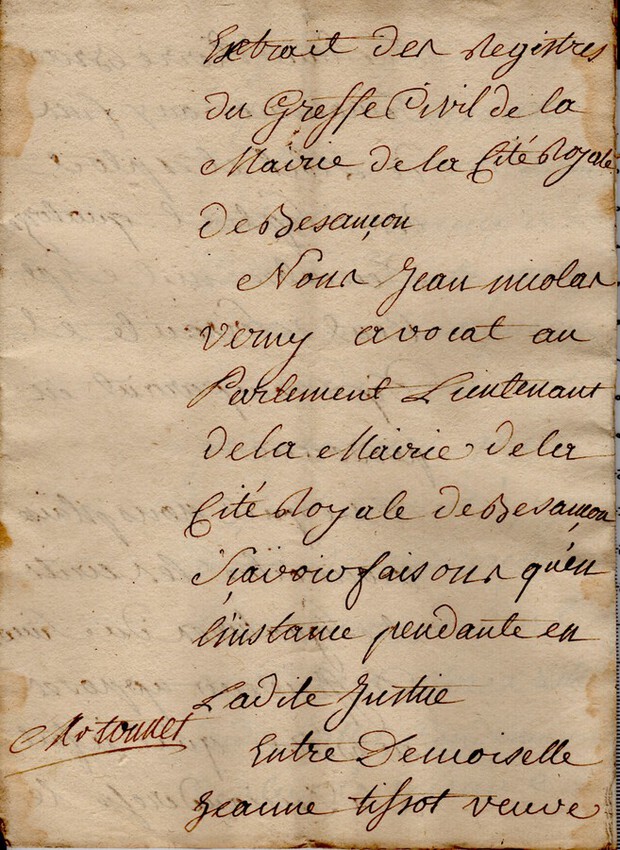 Extrait des Registres
du Greffe Civil de la
Mairie de la Cité Royale
de Besançon
Nous Jean nicolas
verny avocat au
Parlement Lieutenant
de la Mairie de la
Cité Royale de Besançon
Sçavoir faisons qu'en
l'instance pendante en
Ladite Justice
Entre Demoiselle
Jeanne tissot veuve